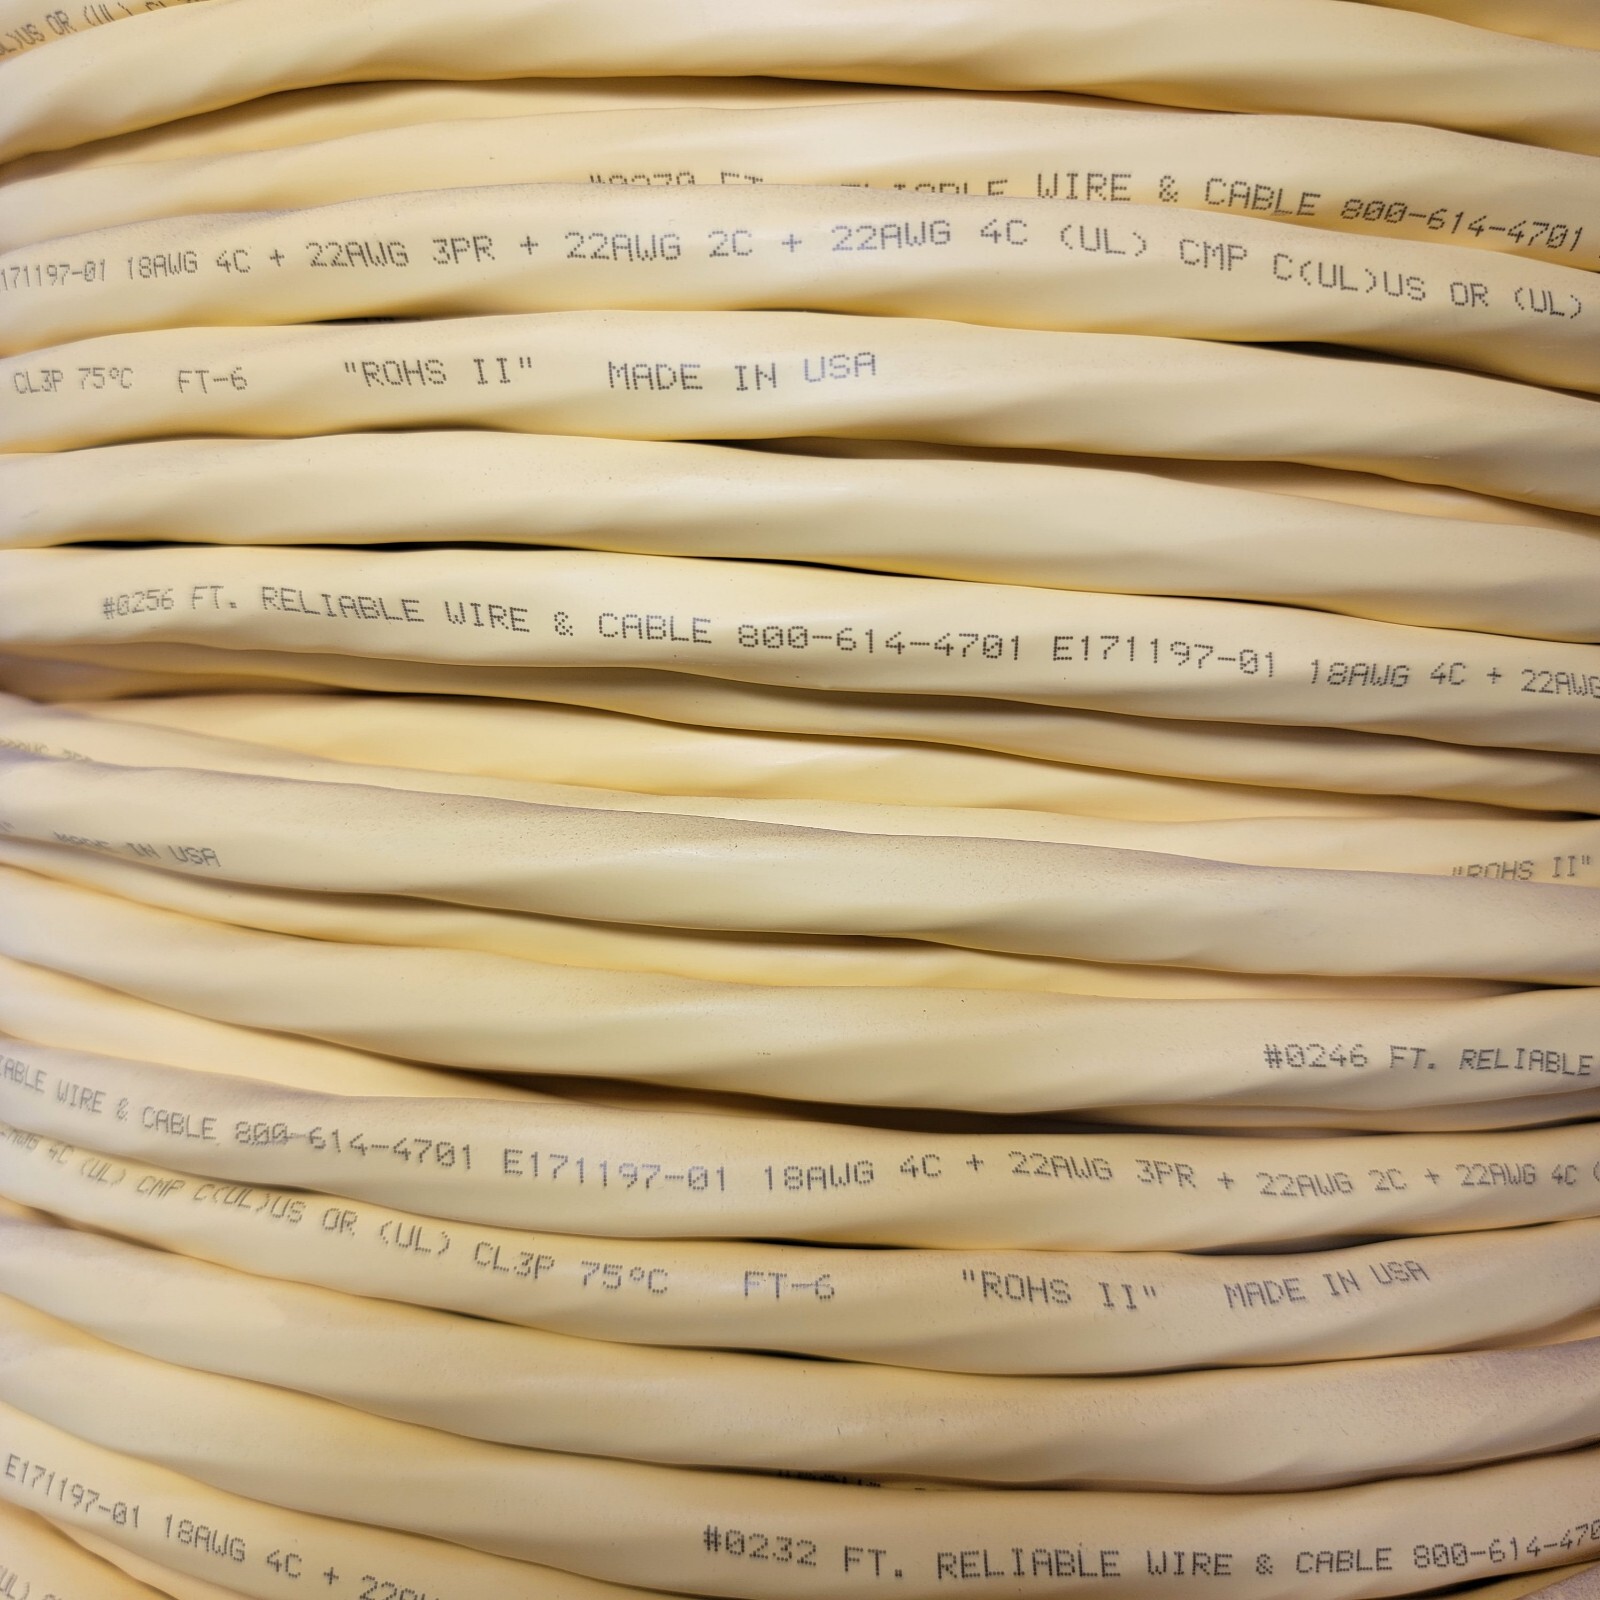 L)US OR (UL)
WIRE & CABLE 800-614-4701
171197-01 18AWG 4C + 22AWG 3PR + 22AWG 2C + 22AWG 4C (UL) CMP C(UL)US OR (UL)
CL3P 75°C FT-6 "ROHS II" MADE IN USA
#0256 FT. RELIABLE WIRE & CABLE 800-614-4701 E171197-01 18AWG 4C + 22AWG
MADE IN USA
"ROHS II"
#0246 FT. RELIABLE
IABLE WIRE & CABLE 800-614-4701 E171197-01 18AWG 4C + 22AWG 3PR + 22AWG 2C + 22AWG 4C (
AWG 4C (UL) CMP C(UL)US OR (UL) CL3P 75°C FT-6 "ROHS II" MADE IN USA
E171197-01 18AWG 4C + 22AW
#0232 FT. RELIABLE WIRE & CABLE 800-614-470